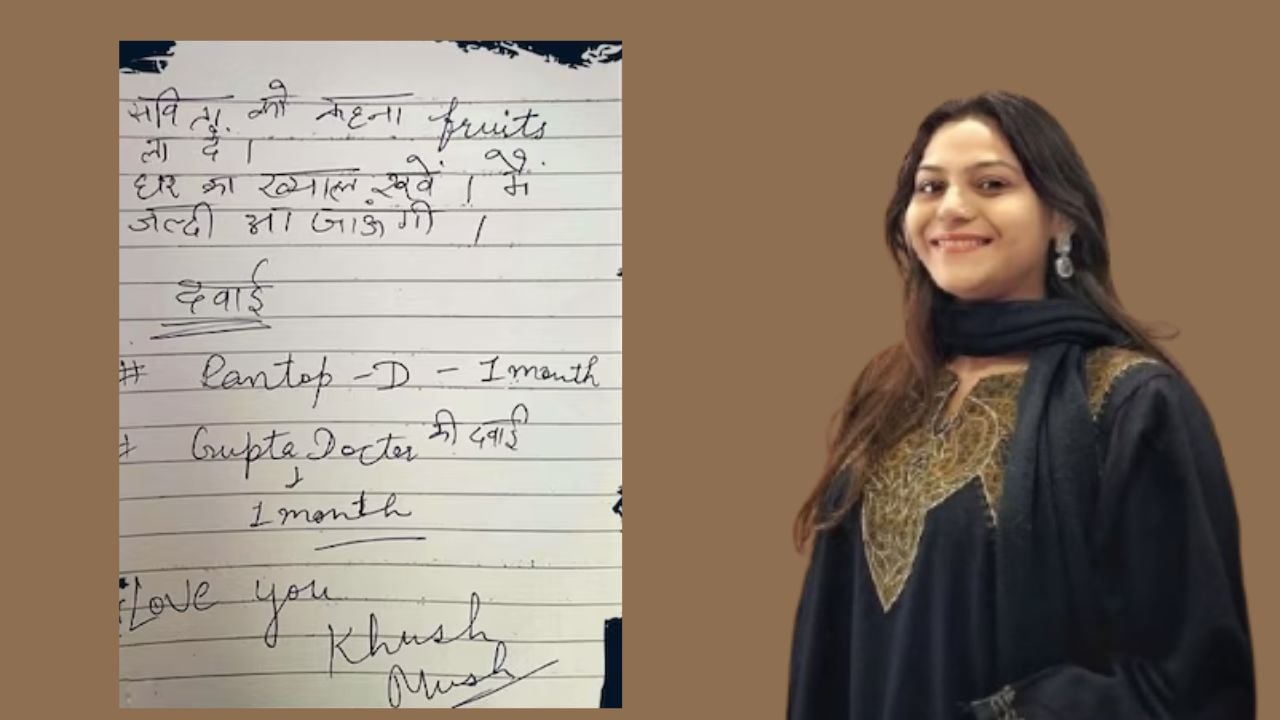 सविता को कहना fruits
ला दे ।
घर का ख्याल रखें । मैं
जल्दी आ जाऊगी ।
दवाई
# Pantop - D - 1 month
# Gupta Docter की दवाई
↓
1 month
Love you
Khush
Mush